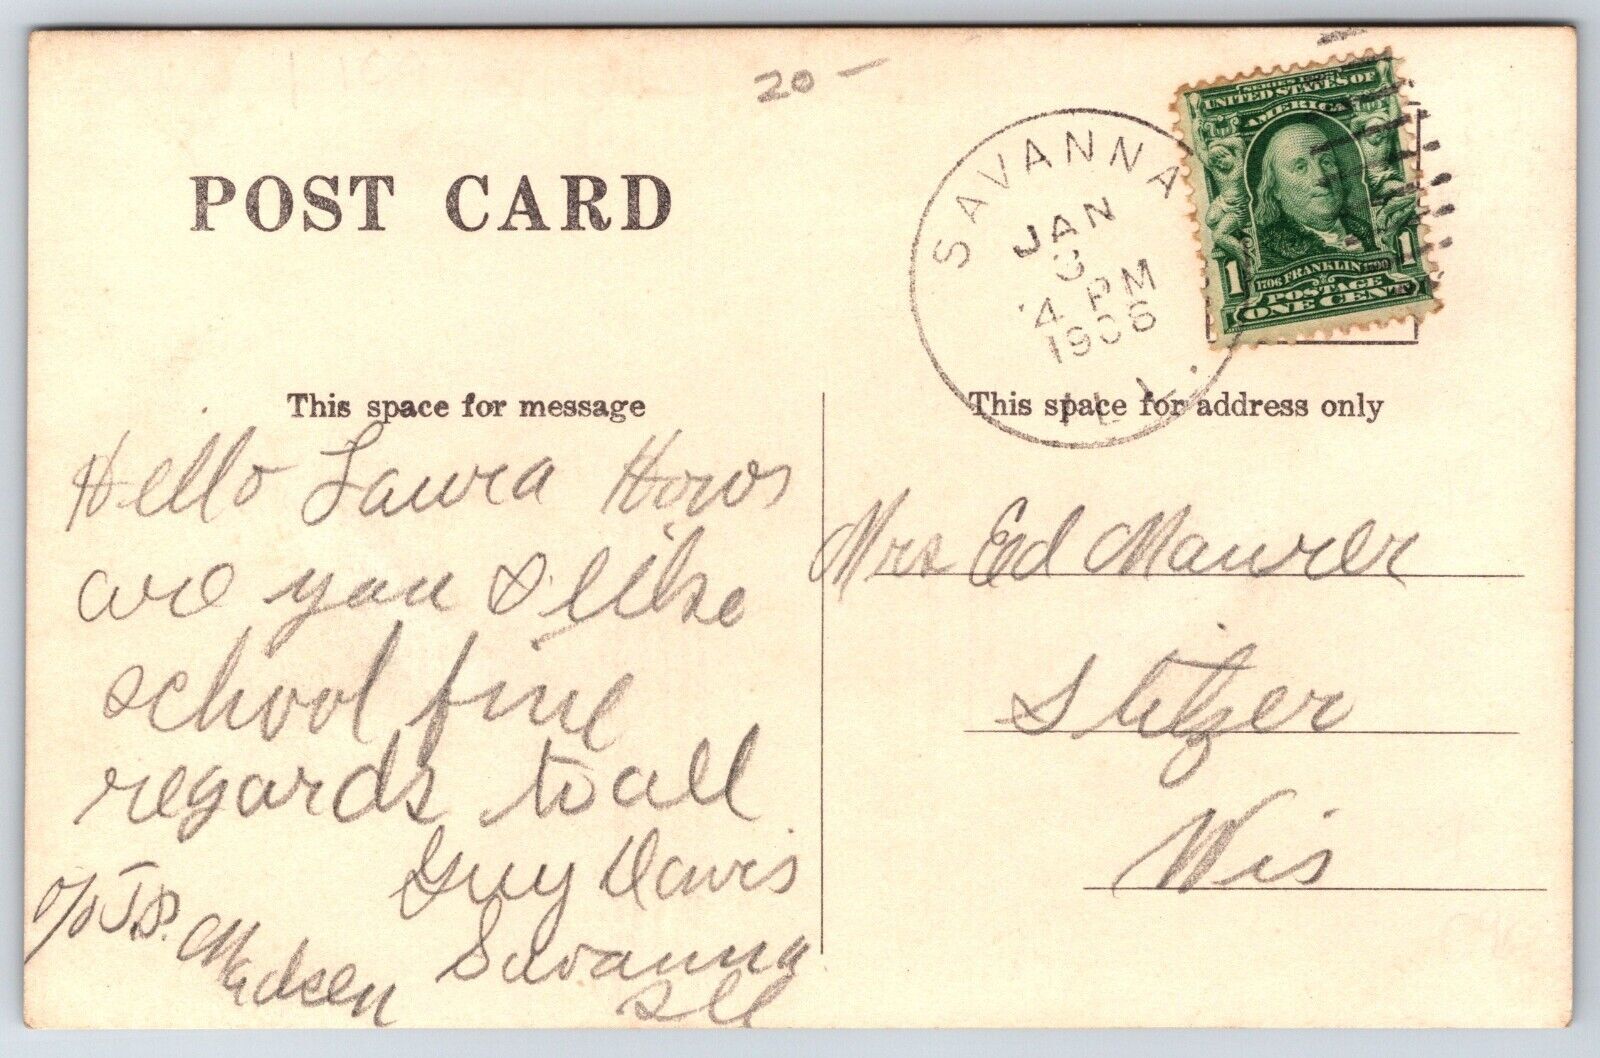 20 —
POST CARD
SAVANNA
JAN
3
4 PM
1906
ILL.
SERIES 1902
UNITED STATES OF
AMERICA
1 1
1706 FRANKLIN 1790
POSTAGE
ONE CENT
This space for message
Hello Laura Hows
are you I like
school fine
regards to all
Guy Davis
c/o J.P. Madsen
Savanna
Ill
This space for address only
Mrs Ed Maurer
Stitzer
Wis